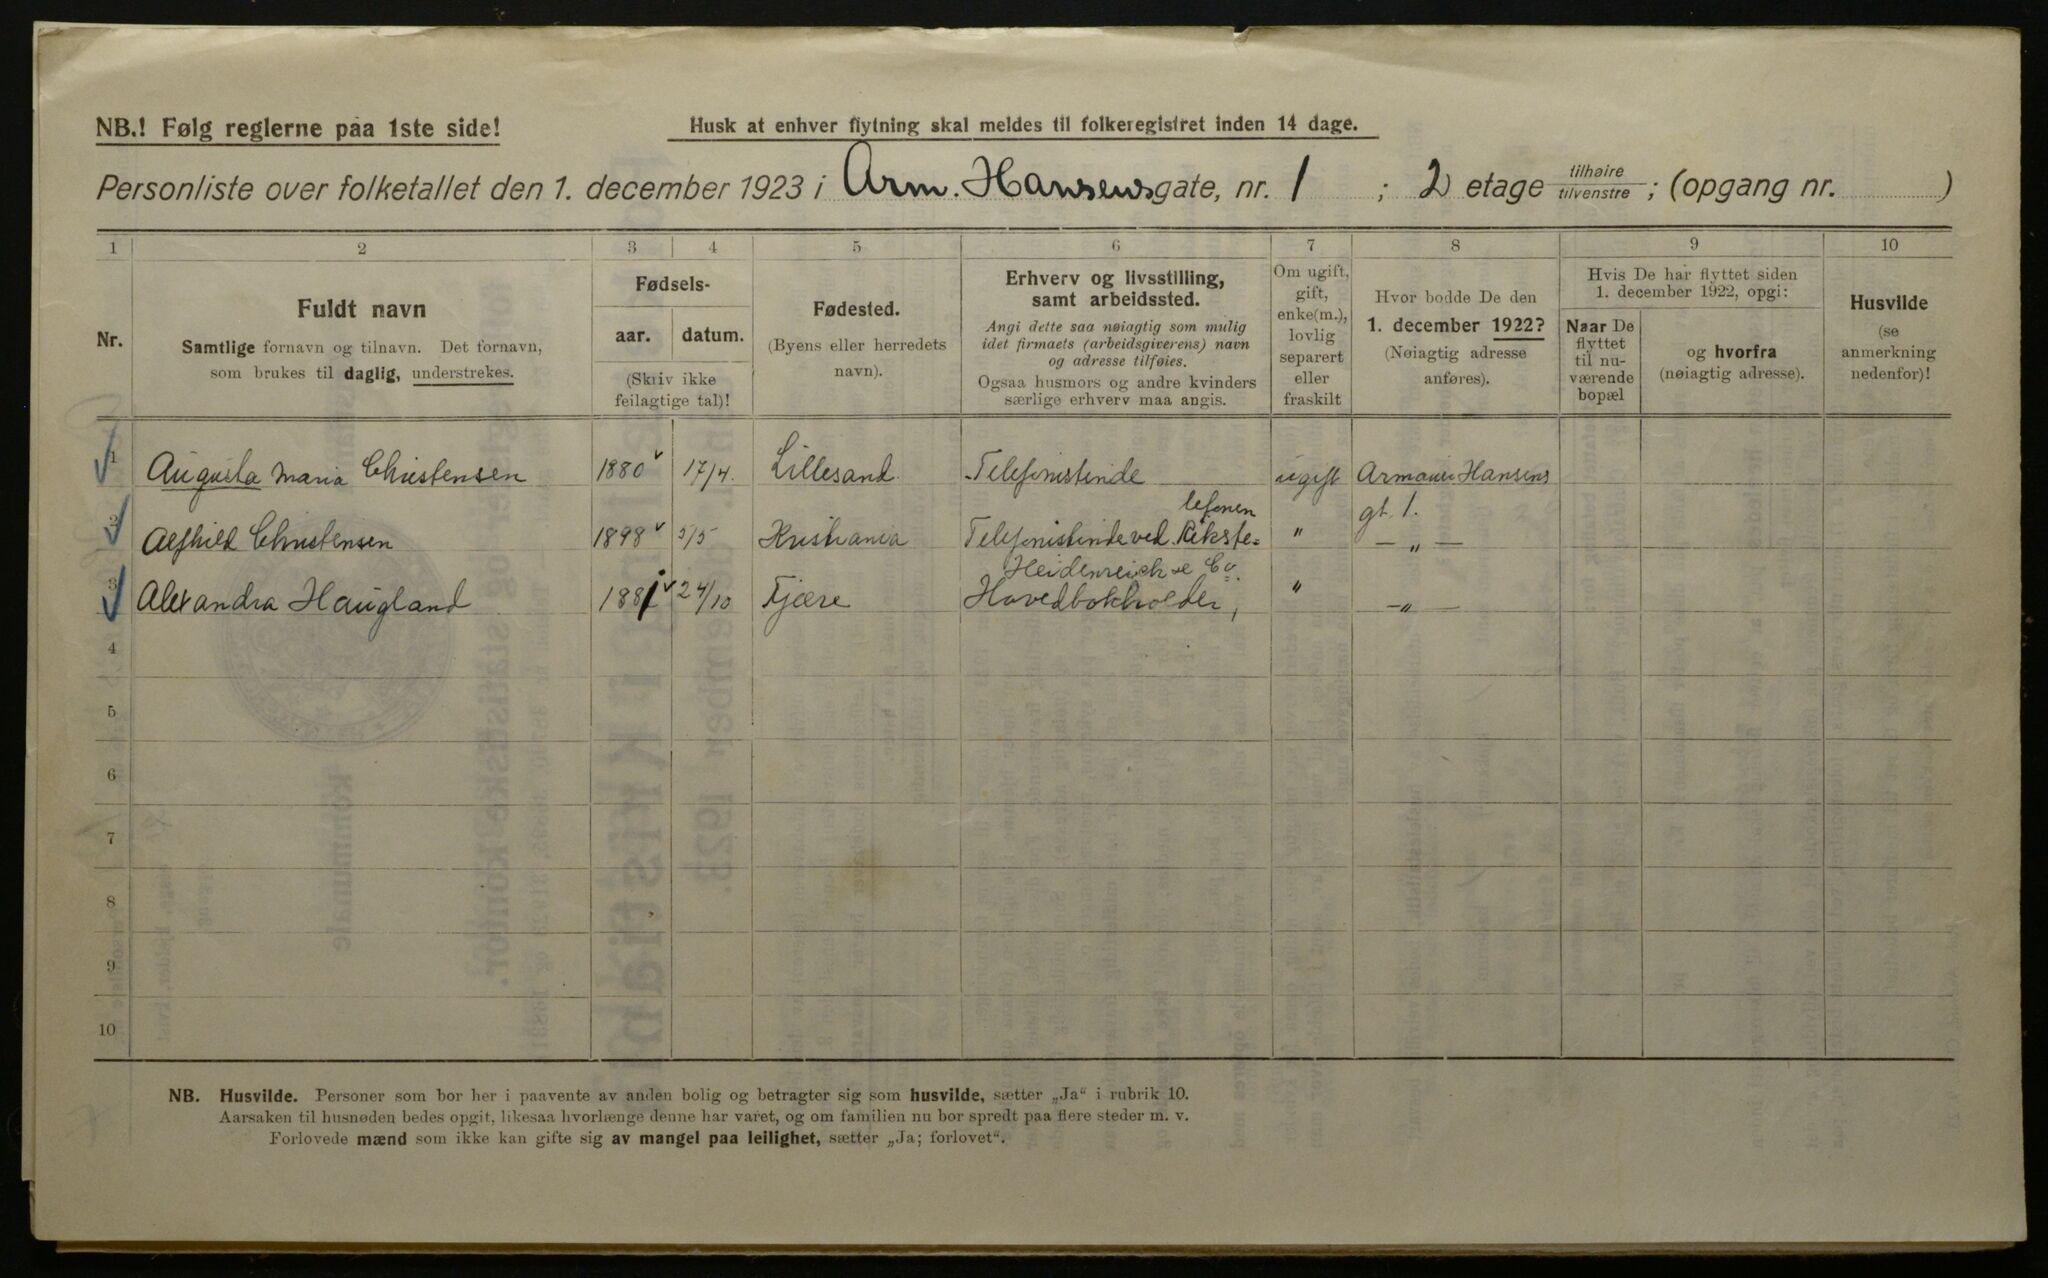 NB.! Følg reglerne paa 1ste side!
Husk at enhver flytning skal meldes til folkeregistret inden 14 dage.
Personliste over folketallet den 1. december 1923 i Arm. Hansens gate, nr. 1 ; 2 etage tilhøire tilvenstre ; (opgang nr. )
1 2 3 4 5 6 7 8 9 10
Nr.
Fuldt navn
Samtlige fornavn og tilnavn. Det fornavn,
som brukes til daglig, understrekes.
Fødsels-
aar. datum.
(Skriv ikke
feilagtige tal)!
Fødested.
(Byens eller herredets
navn).
Erhverv og livsstilling,
samt arbeidssted.
Angi dette saa nøiagtig som mulig
idet firmaets (arbeidsgiverens) navn
og adresse tilføies.
Ogsaa husmors og andre kvinders
særlige erhverv maa angis.
Om ugift,
gift,
enke(m.),
lovlig
separert
eller
fraskilt
Hvor bodde De den
1. december 1922?
(Nøiagtig adresse
anføres).
Hvis De har flyttet siden
1. december 1922, opgi:
Naar De
flyttet
til nu-
værende
bopæl
og hvorfra
(nøiagtig adresse).
Husvilde
(se
anmerkning
nedenfor)!
1 Augusta Maria Christensen 1880 17/4. Lillesand Telefonistinde ugift Armauer Hansens
gt. 1.
lefonen
2 Alfhild Christensen 1898 5/5 Kristiania Telefonistinde ved Rikste= " — " —
Heidenreich & Co.
3 Alexandra Haugland 1881 24/10 Fjære Hovedbokholder, " — " —
4
5
6
7
8
9
10
NB. Husvilde. Personer som bor her i paavente av anden bolig og betragter sig som husvilde, sætter „Ja“ i rubrik 10.
Aarsaken til husnøden bedes opgit, likesaa hvorlænge denne har varet, og om familien nu bor spredt paa flere steder m. v.
Forlovede mænd som ikke kan gifte sig av mangel paa leilighet, sætter „Ja; forlovet“.